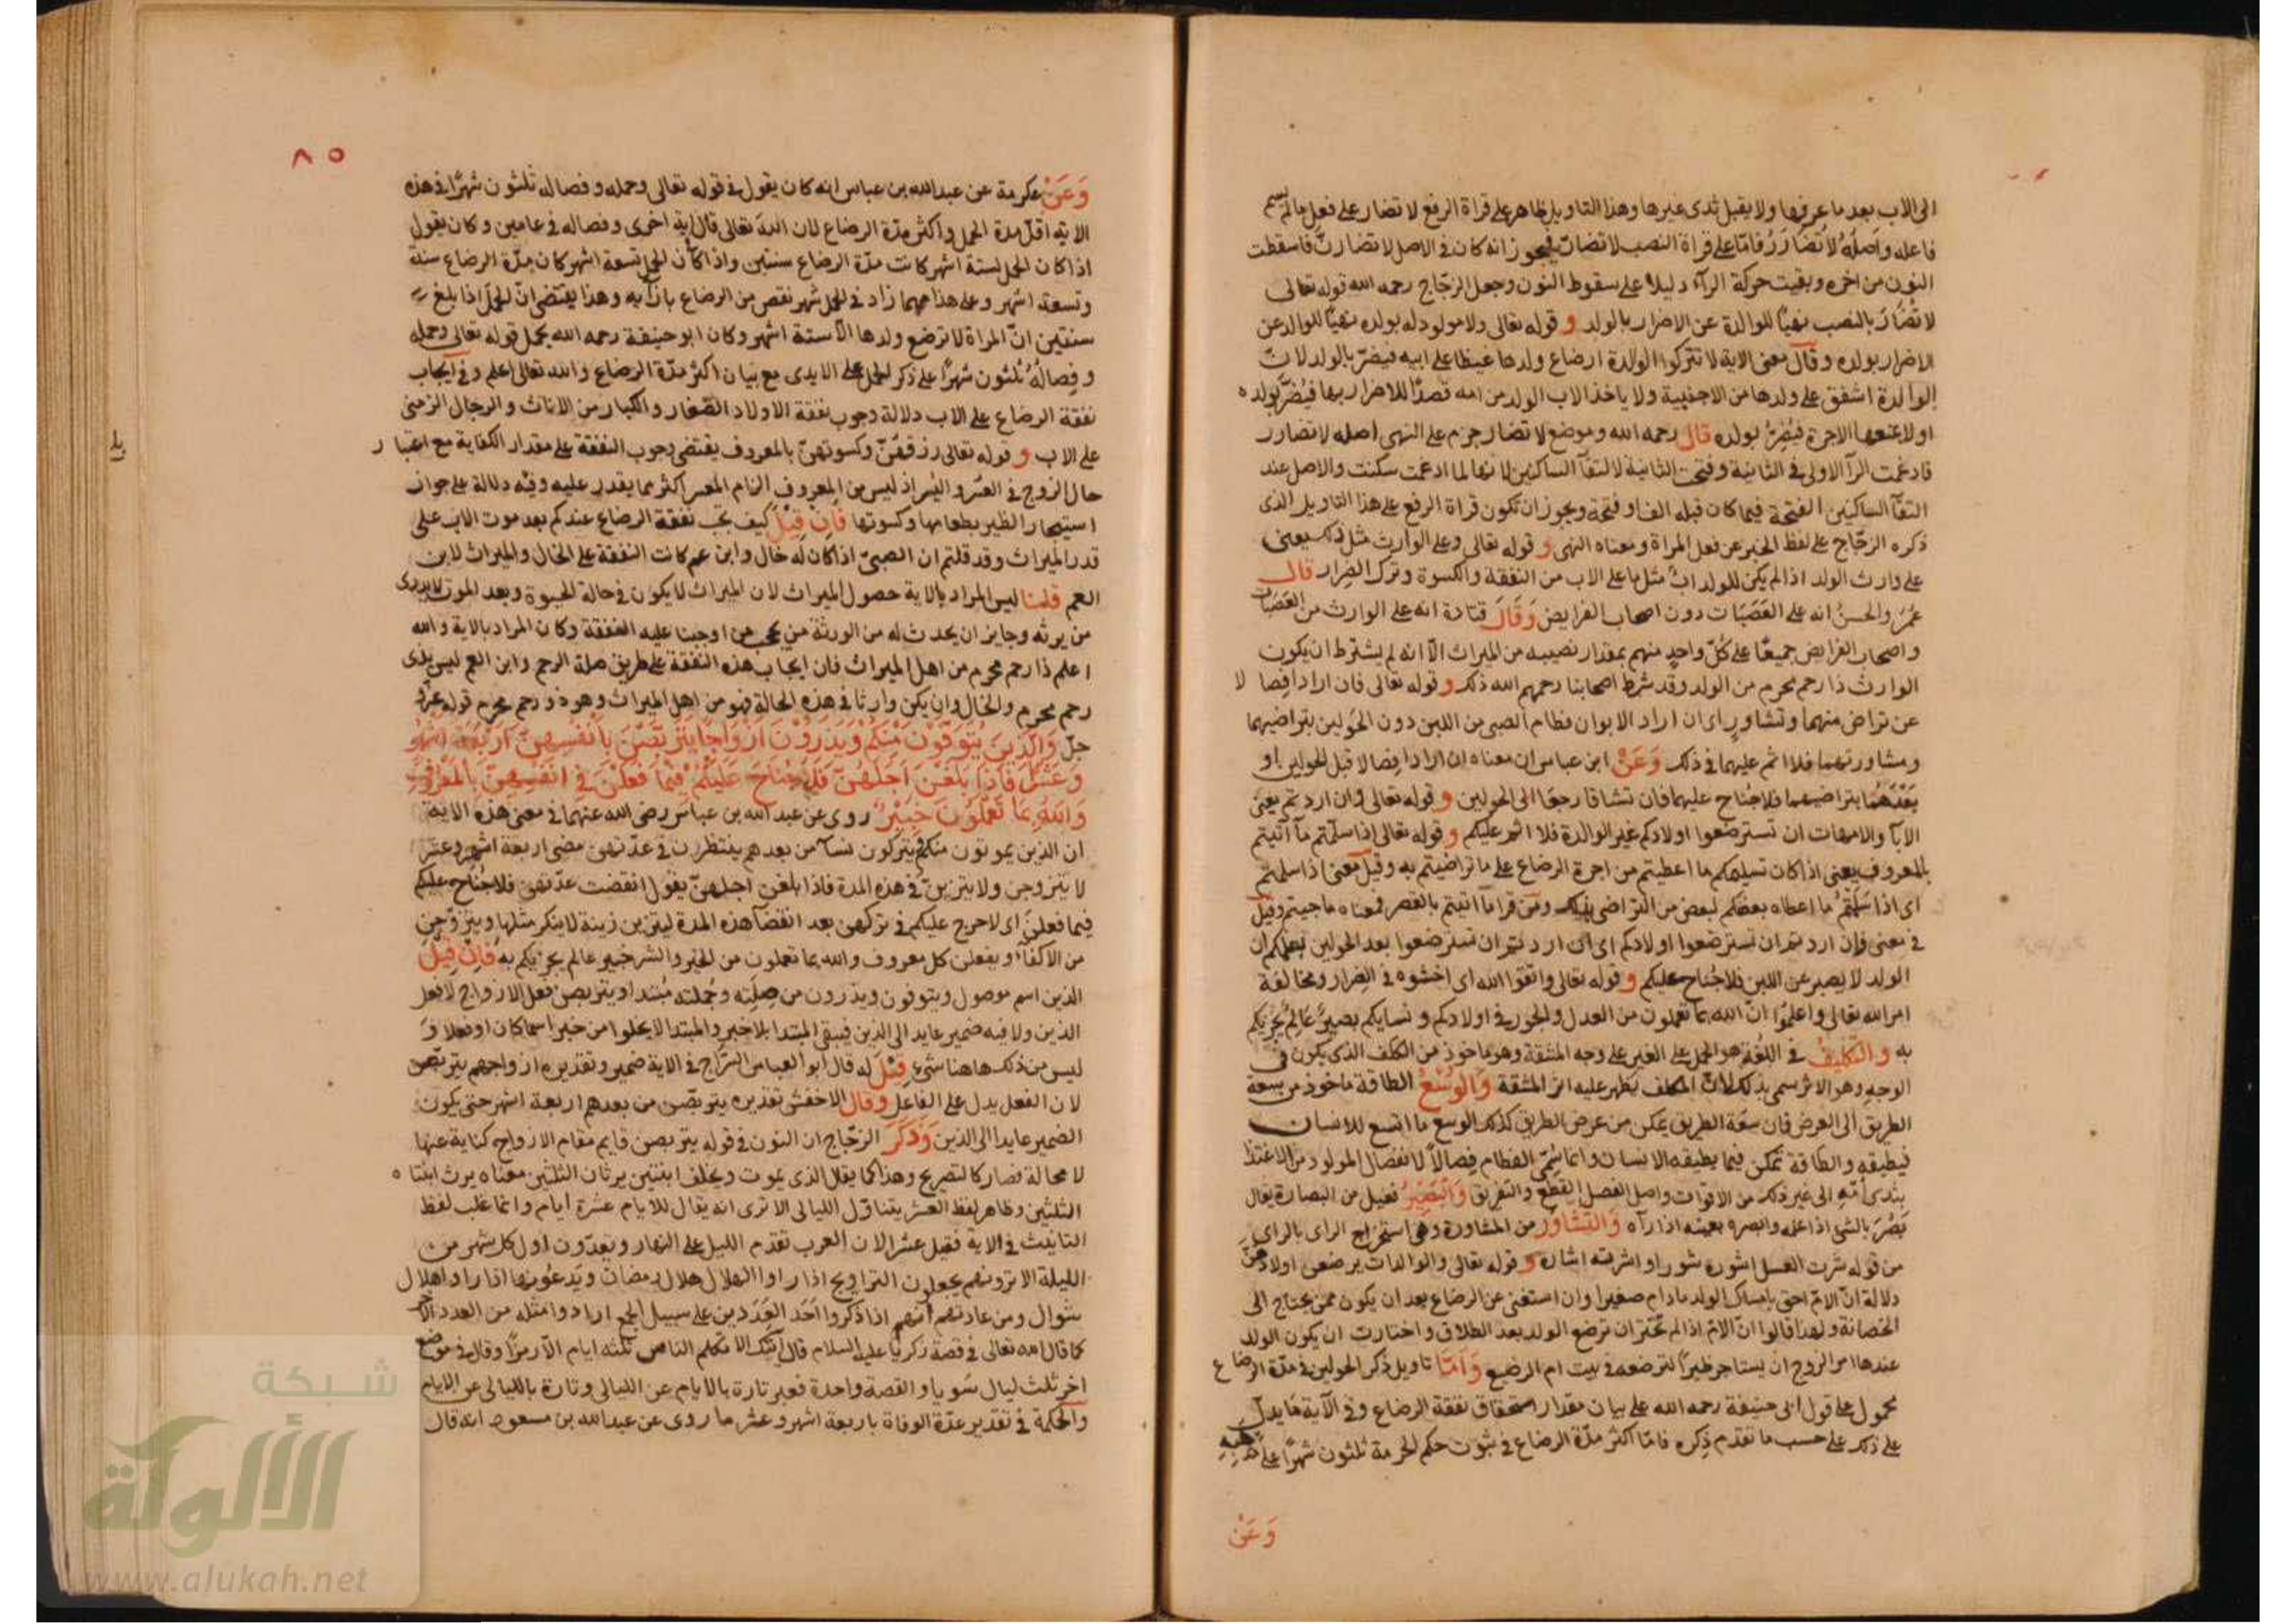 الى الاب بعد ما عرفها ولا يقبل ثدى غيرها وهذا التاويل ظاهر على قراة الرفع لا تضار على فعل ما لم يسم
فاعله واصله لا تُضَارَرُ فامّا على قراة النصب لا تضارّ فيجوز انه كان فى الاصل لا تضارنّ فاسقطت
النون من اخره وبقيت حركة الرآء دليلا على سقوط النون وجعل الزجّاج رحمه الله قوله تعالى
لا تُضَارَّ بالنصب نهيًا للوالدة عن الاضرار بالولد و قوله تعالى ولا مولود له بولده نهيًا للوالد عن
الاضرار بولده وقال معنى الاية لا تتركوا الوالدة ارضاع ولدها غيظا على ابيه فيضرّ بالولد لانّ
الوالدة اشفق على ولدها من الاجنبية ولا ياخذ الاب الولد من امه قصدًا للاضرار بها فيُضرّ بولده
او لا يمنعها الاجرة فيُضِرّ بولده قال رحمه الله وموضع لا تضار جزم على النهى اصله لا تضارر
فادغمت الرآ الاولى فى الثانية وفتحت الثانية لالتقآ الساكنين لانها لما ادغمت سكنت والاصل عند
التقآ الساكنين الفتحة فيما كان قبله الف او فتحة ويجوز ان تكون قراة الرفع على هذا التاويل الذى
ذكره الزجّاج على لفظ الخبر عن فعل المراة ومعناه النهى و قوله تعالى وعلى الوارث مثل ذلك يعنى
على وارث الولد اذا لم يكن للولد ابٌ مثل ما على الاب من النفقة والكسوة وترك الضِرار قال
عُمَر والحسنُ انه على العَصَبَات دون اصحاب الفرايض وَقَالَ قتادة انه على الوارث من العَصَبات
واصحاب الفرايض جميعًا على كلّ واحدٍ منهم بمقدار نصيبه من الميراث الّا انه لم يشترط ان يكون
الوارث ذا رحم محرم من الولد وقد شرط اصحابنا رحمهم الله ذلك و قوله تعالى فان ارادا فِصالا
عن تراض منهما وتشاورٍ اى ان اراد الابوان فطام الصبى من اللبن دون الحَولين بتراضيهما
ومشاورتهما فلا اثم عليهما فى ذلك وَعَنْ ابن عباس ان معناه ان ارادا فصالا قبل الحولين او
بَعْدَهُمَا بتراضيهما فلا جُناح عليهما فان تشاقا رجعا الى الحولين و قوله تعالى وان اردتم يعنى
الابآ والامهات ان تسترضعوا اولادكم غير الوالدة فلا اثم عليكم و قوله تعالى اذا سلّمتم مآ اتيتم
بالمعروف يعنى اذا كان تسليمكم ما اعطيتم من اجرة الرضاع على ما تراضيتم به وقيل معنى اذا سلمتم
اى اذا سَلّمتُم ما اعطاه بعضكم لبعض من التراضى بذلك ومن قرا مآ اتيتم بالقصر فمعناه ما جيتم وقيل
فى معنى فان اردتم ان تسترضعوا اولادكم اى ان اردتم ان تسترضعوا بعد الحولين بعلمكم ان
الولد لا يصبر عن اللبن فلا جُناح عليكم و قوله تعالى واتقوا الله اى اخشوه فى الضِرار ومخالفة
امر الله تعالى واعلموا انّ الله بما تعملون من العدل والجور فى اولادكم ونسايكم بصيرٌ عَالِمٌ يُجزيكم
به و التكليفُ فى اللّغة هو الحمل على الغير على وجه المشقة وهو ماخوذ من الكلف الذى يكون فى
الوجه وهو الاثر سمى بذلك لانّ المكلف يظهر عليه اثر المشقة وَالوُسْعُ الطاقة ماخوذ من سِعة
الطريق الى العرض فان سعَة الطريق يمكن من عرض الطريق كذلك الوسع ما اتسع للانسان
فيطيقه والطاقة تمكن فيما يطيقه الانسان وانما سُمّى الفطام فِصالاً لانفصال المولود من الاغتذا
بثدى اُمّه الى غير ذلك من الاقوات واصل الفصل القطع والتفريق وَالبَصِيْرُ فعيل من البصارة يقال
بَصُرَ بالشئ اذا علمه وابصره بعينه اذا رآه وَالتّشاور من المشاورة وهى استخراج الراى بالراى
من قوله شرت العسل اشوره شورا واشرته اشارة و قوله تعالى والوالدات يرضعن اولادهنّ
دلالة انّ الامّ احق بامساك الولد ما دام صغيرا وان استغنى عن الرضاع بعد ان يكون ممن يحتاج الى
الحَضانة ولهذا قالوا انّ الامّ اذا لم تختر ان ترضع الولد بعد الطلاق واختارت ان يكون الولد
عندها امر الزوج ان يستاجر ظيرًا لترضعه فى بيت ام الرضيع وَاَمّا تاويل ذكر الحولين فى مدّة الرضاع
محمول على قول ابى حنيفة رحمه الله على بيان مقدار استحقاق نفقة الرضاع وفى الآية ما يدل
على ذلك على حسب ما تقدم ذكره فامّا اكثر مدّة الرضاع فى ثبوت حكم الحرمة ثلثون شهرًا على مذهبه
وَعَنْ
٨٥
وَعَنْ عكرمة عن عبدالله بن عباس انه كان يقول فى قوله تعالى وحمله وفصاله ثلثون شهرًا فى هذه
الاية اقلّ مدة الحمل واكثر مدّة الرضاع لان الله تعالى قال فى اية اخرى وفصاله فى عامين وكان يقول
اذا كان الحمل لستة اشهر كانت مدّة الرضاع سنتين واذا كان الحمل تسعة اشهر كان مدّة الرضاع سنة
وتسعة اشهر وعلى هذا مهما زاد فى الحمل شهر نقص من الرضاع بازآيه وهذا يقتضى انّ الحمل اذا بلغ
سنتين انّ المراة لا ترضع ولدها الّا ستة اشهر وكان ابو حنيفة رحمه الله يحمل قوله تعالى وحمله
وفِصالُهُ ثلثون شهرًا على ذكر الحمل على الايدى مع بيان اكثر مدّة الرضاع والله تعالى اعلم وفى ايجاب
نفقة الرضاع على الاب دلالة وجوب نفقة الاولاد الصّغار والكبار من الاناث والرجال الزمنى
على الاب و قوله تعالى رزقهنّ وكسوتهنّ بالمعروف يقتضى وجوب النفقة على مقدار الكفاية مع اعتبار
حال الزوج فى العُسر واليُسر اذ ليس من المعروف الزام المعسر اكثر مما يقدر عليه وفيْه دلالة على جواز
استيجار الظير بطعامها وكسوتها فَاِنْ قِيْلَ كيف تجب نفقة الرضاع عندكم بعد موت الاب على
قدر الميراث وقد قلتم ان الصبىّ اذا كان له خال وابن عم كانت النفقة على الخال والميراث لابن
العم قلنا ليس المراد بالاية حصول الميراث لان الميراث لا يكون فى حالة الحيوة وبعد الموت لا يدرى
من يرثه وجايز ان يحدث له من الورثة من يحجب من اوجبنا عليه النفقة وكان المراد بالاية والله
اعلم ذا رحم محرم من اهل الميراث فان ايجاب هذه النفقة على طريق صلة الرحم وابن العم ليس بذى
رحم محرم والخال وان يكن وارثا فى هذه الحالة فهو من اهل الميراث وهو ذو رحم محرم قوله عزّ و
جلّ وَالَّذِينَ يُتَوَفَّوْنَ مِنْكُمْ وَيَذَرُوْنَ اَزْوَاجًا يَتَرَبَّصْنَ بِاَنْفُسِهِنَّ اَرْبَعَةَ اَشْهُرٍ
وَعَشْرًا فَاِذَا بَلَغْنَ اَجَلَهُنَّ فَلَا جُنَاحَ عَلَيْكُمْ فِيْمَا فَعَلْنَ فى اَنْفُسِهِنَّ بِالْمَعْرُوفِ
وَاللّهُ بِمَا تَعْمَلُوْنَ خَبِيْرٌ روى عن عبد الله بن عباس رضى الله عنهما فى معنى هذه الاية
ان الذين يموتون منكم ويتركون نسآ من بعدهم ينتظرن فى عدّتهن مضى اربعة اشهر وعشر
لا يتزوجن ولا يتزينّ فى هذه المدة فاذا بلغن اجلهنّ يقول انقضت عدّتهن فلا جُناح عليكم
فيما فعلن اى لا حرج عليكم فى تركهن بعد انقضآ هذه المدة ليتزين زينة لا ينكر مثلها ويتزوّجن
من الاكفآ ويفعلن كل معروف والله بما تعملون من الخير والشر خبير عالم يجزيكم به فَاِنْ قِيْلَ
الذين اسم موصول ويتوفون ويذرون من صِلته وجُملته مُبتدا ويتربصن فعل الازواج لا فعل
الذين ولا فيه ضمير عايد الى الذين فيبقى المبتدا بلا خبر والمبتدا لا يخلوا من خبر اسما كان او فعلا وَ
ليس من ذلك هاهنا شئ قِيْلَ له قال ابو العباس السّراج فى الاية ضمير وتقديره ازواجهم يتربّصن
لان الفعل يدل على الفاعل وقال الاخفش تقديره يتربّصن من بعدهم اربعة اشهر حتى يكون
الضمير عايدا الى الذين وَذَكَرَ الزجّاج ان النون فى قوله يتربصن قايم مقام الازواج كناية عنها
لا محالة فصار كالتصريح وهذا كما يقال الذى يموت ويخلف ابنتين يرثان الثلثين معناه يرث ابنتاه
الثلثين وظاهر لفظ العشر يتناول الليالى الا ترى انه يقال للايام عشرة ايام وانما غلب لفظ
التانيث فى الاية فقيل عشرا لان العرب تقدم الليل على النهار ويعدّون اول كل شهر من
الليلة الا ترونهم يصلون التراويح اذا راوا الهلال هلال رمضان ويَدعُونها اذا راوا هلال
شوال ومن عادتهم انهم اذا ذكروا اَحَد العَدَدين على سبيل الجمع ارادوا مثله من العدد الآخر
كما قال الله تعالى فى قصة زكريّا عليه السلام قال آيتك الا تكلم الناس ثلثه ايام الّا رمزًا وقال فى موضع
اخر ثلث ليال سَويا والقصة واحدة فعبر تارة بالايام عن الليالى وتارة بالليالى عن الايام
والحكمة فى تقدير عدّة الوفاة باربعة اشهر وعشر ما روى عن عبدالله بن مسعود انه قال
شبكة
الألوكة
www.alukah.net